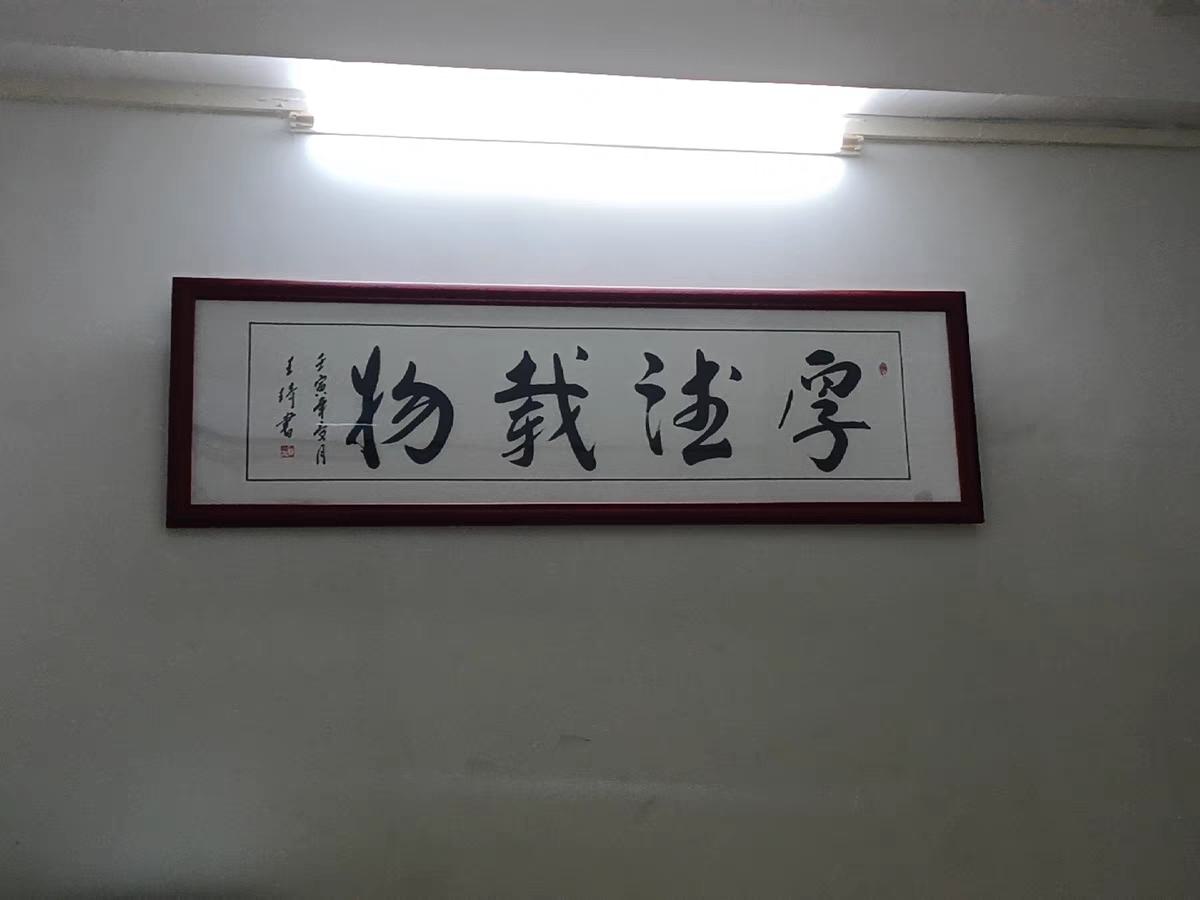 厚德载物
壬寅年夏月
王琦书